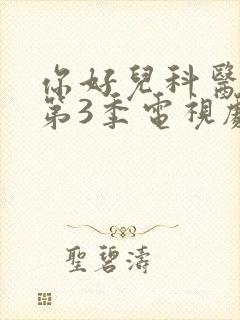 你好兒科醫
第3季電視劇
聖碧濤